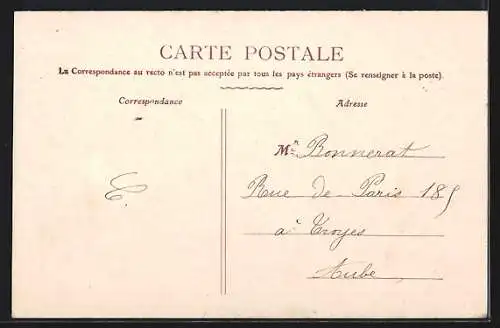 CARTE POSTALE
La Correspondance au recto n'est pas acceptée par tous les pays étrangers (Se renseigner à la poste).
Correspondance
Adresse
Bonnerat
Rue de Paris 185
à Troyes
Aube